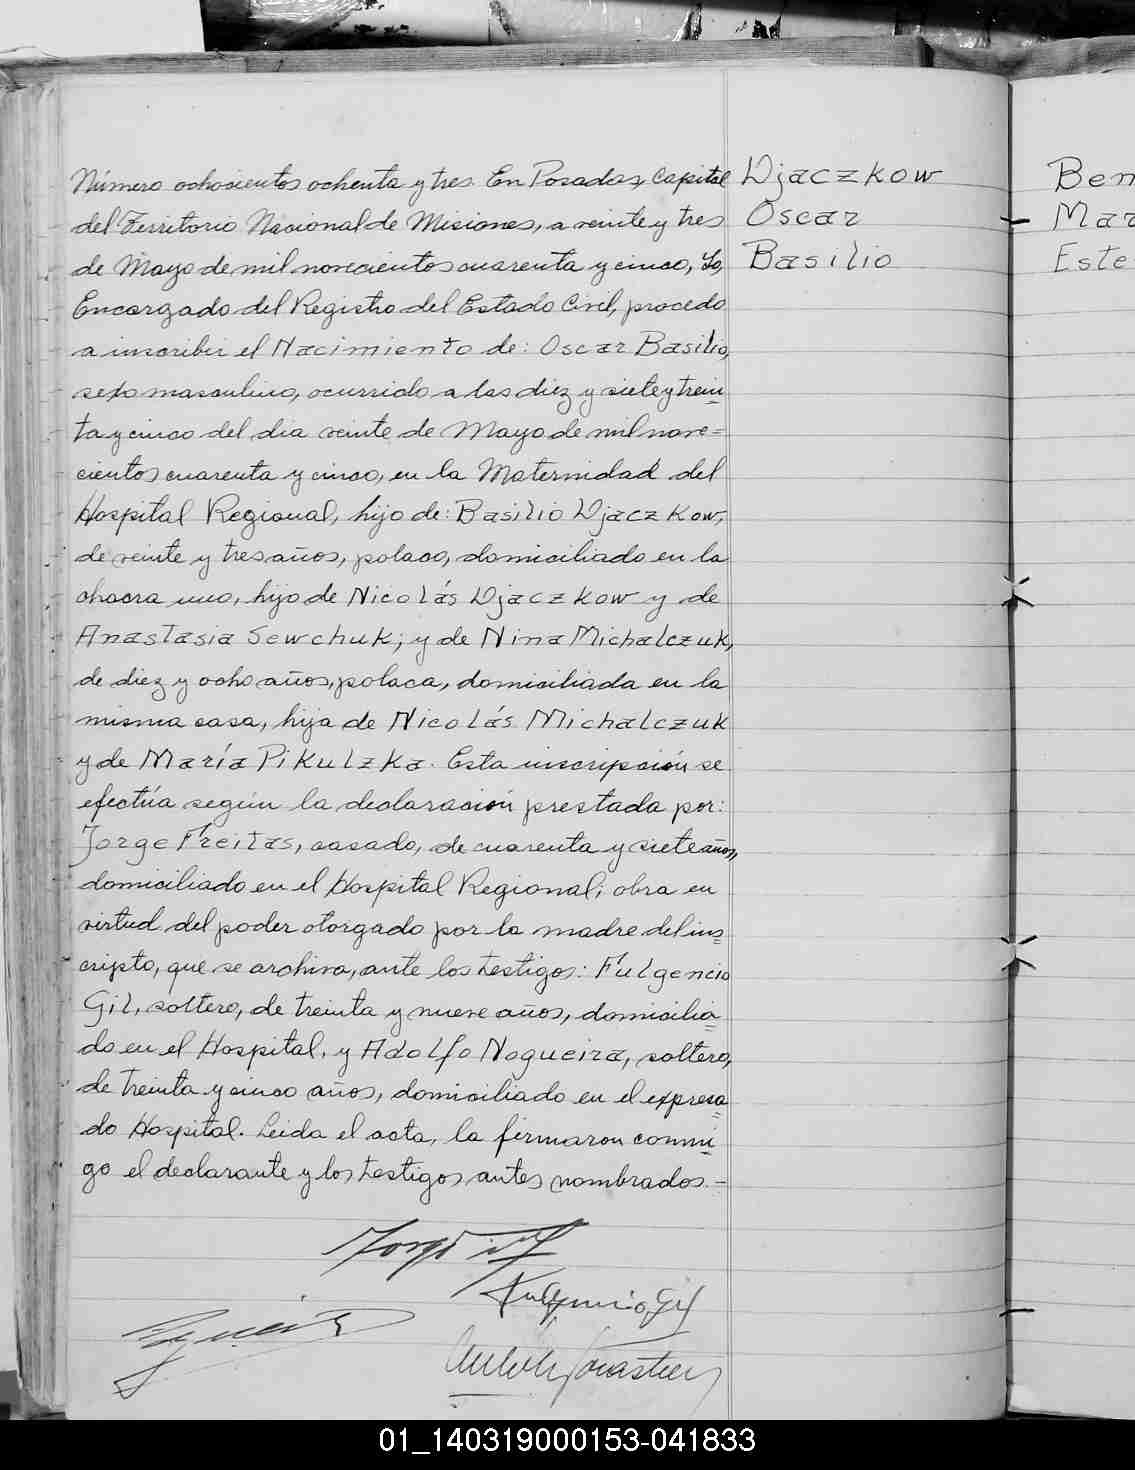 Número ochocientos ochenta y tres. En Posadas, Capital
del Territorio Nacional de Misiones, a veinte y tres
de Mayo de mil novecientos cuarenta y cinco, Yo,
Encargado del Registro del Estado Civil, procedo
a inscribir el Nacimiento de: Oscar Basilio,
sexo masculino, ocurrido a las diez y siete y trein=
ta y cinco del dia veinte de Mayo de mil nove=
cientos cuarenta y cinco, en la Maternidad del
Hospital Regional, hijo de: Basilio Djaczkow,
de veinte y tres años, polaco, domiciliado en la
chacra uno, hijo de Nicolás Djaczkow y de
Anastasia Sewchuk; y de Nina Michalczuk,
de diez y ocho años, polaca, domiciliada en la
misma casa, hija de Nicolás Michalczuk
y de María Pikulzka. Esta inscripción se
efectúa según la declaración prestada por:
Jorge Freitas, casado, de cuarenta y siete años,
domiciliado en el Hospital Regional; obra en
virtud del poder otorgado por la madre del ins=
cripto, que se archiva, ante los testigos: Fulgencio
Gil, soltero, de treinta y nueve años, domicilia=
do en el Hospital, y Adolfo Nogueira, soltero,
de treinta y cinco años, domiciliado en el expresa=
do Hospital. Leida el acta, la firmaron conmi=
go el declarante y los testigos antes nombrados.-
Fulgencio Gil
Djaczkow
Oscar
Basilio
Ben
Mar
Este
01_140319000153-041833